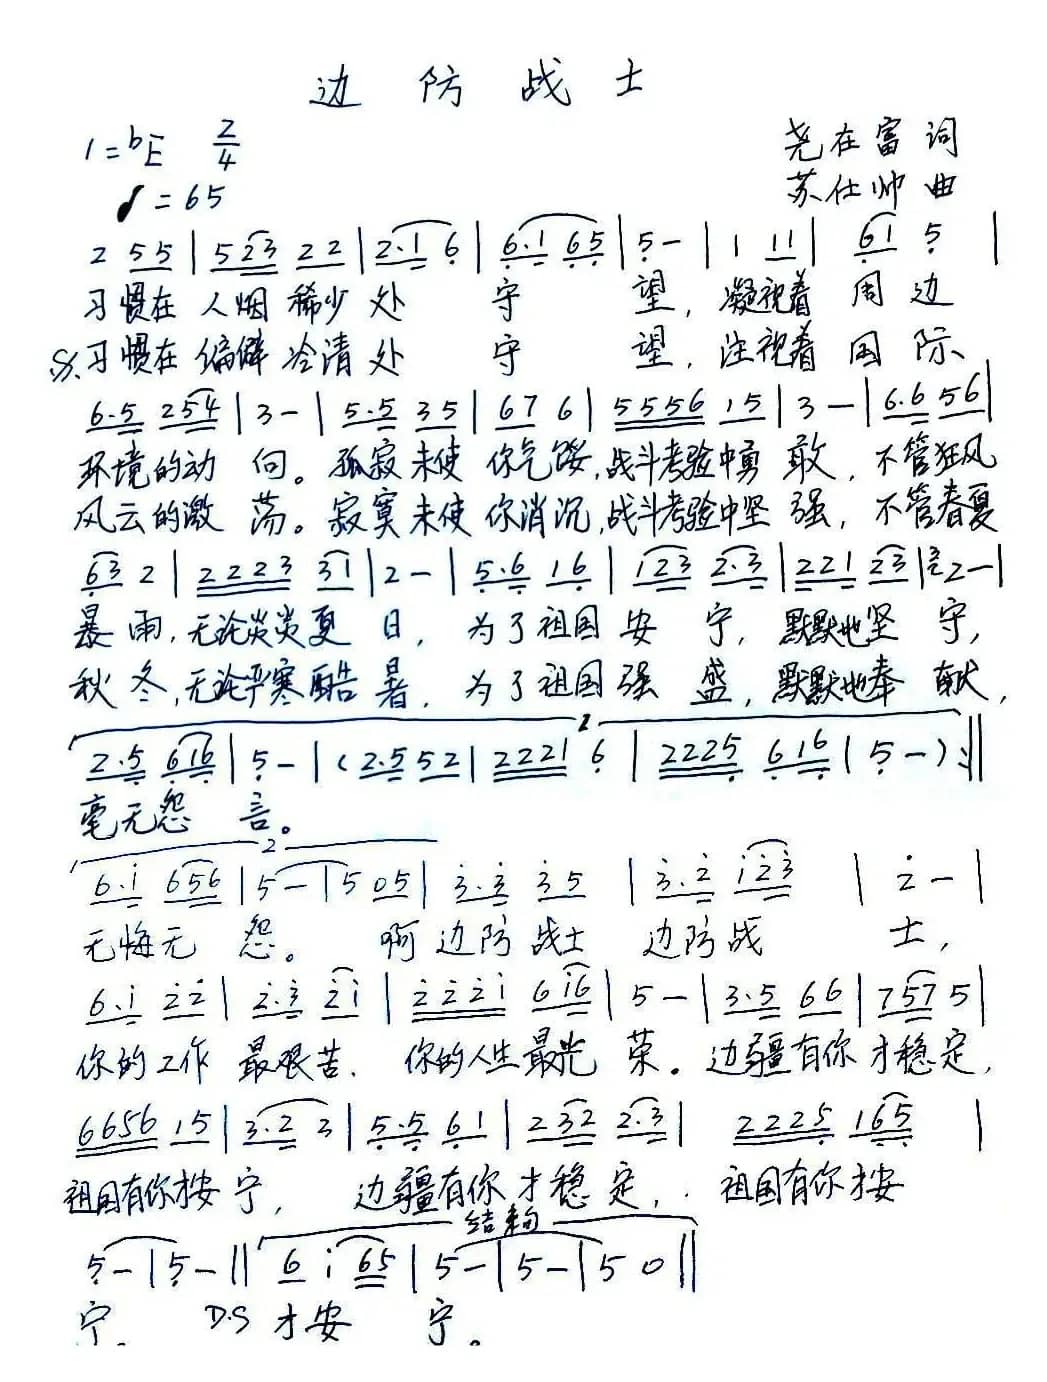 边防战士
1=♭E 2/4
尧在富 词
♩=65
苏仕帅 曲
2 55 | 523 22 | 2·1 6 | 6·1 65 | 5 - | 1 11 | 61 5 |
习惯在 人烟 稀少 处 守 望，凝视着 周 边
习惯在 偏僻 冷清 处 守 望，注视着 国 际、
6·5 254 | 3 - | 5·5 35 | 67 6 | 5556 15 | 3 - | 6·6 56 |
环境的动 向。孤寂未使 你气馁，战斗考验中勇 敢，不管狂风
风云的激 荡。寂寞未使 你消沉，战斗考验中坚 强，不管春夏
63 2 | 2223 31 | 2 - | 5·6 16 | 123 2·3 | 221 23 | 3 2 - |
暴 雨，无论炎炎夏 日，为了祖国 安 宁，默默地坚 守，
秋 冬，无论严寒酷 暑，为了祖国 强 盛，默默地奉 献，
1
2·5 616 | 5 - | (2·5 52 | 2221 6 | 2225 616 | 5 -) :‖
毫无怨 言。
2
6·i 656 | 5 - | 5 05 | 3·3 35 | 3·2 i23 | 2 - |
无悔无 怨。 啊 边防 战士 边防战 士，
6·i 22 | 2·3 2i | 222i 6i6 | 5 - | 3·5 66 | 757 5 |
你的工作 最艰苦、 你的人生最光 荣。边疆有你 才稳定，
6656 15 | 3·2 3 | 5·5 61 | 232 2·3 | 2225 165 |
祖国有你才安 宁， 边疆有你 才稳 定， 祖国有你才安
结束句
5 - | 5 - ‖ 6 i 65 | 5 - | 5 - | 5 0 ‖
宁。 D.S 才安 宁。